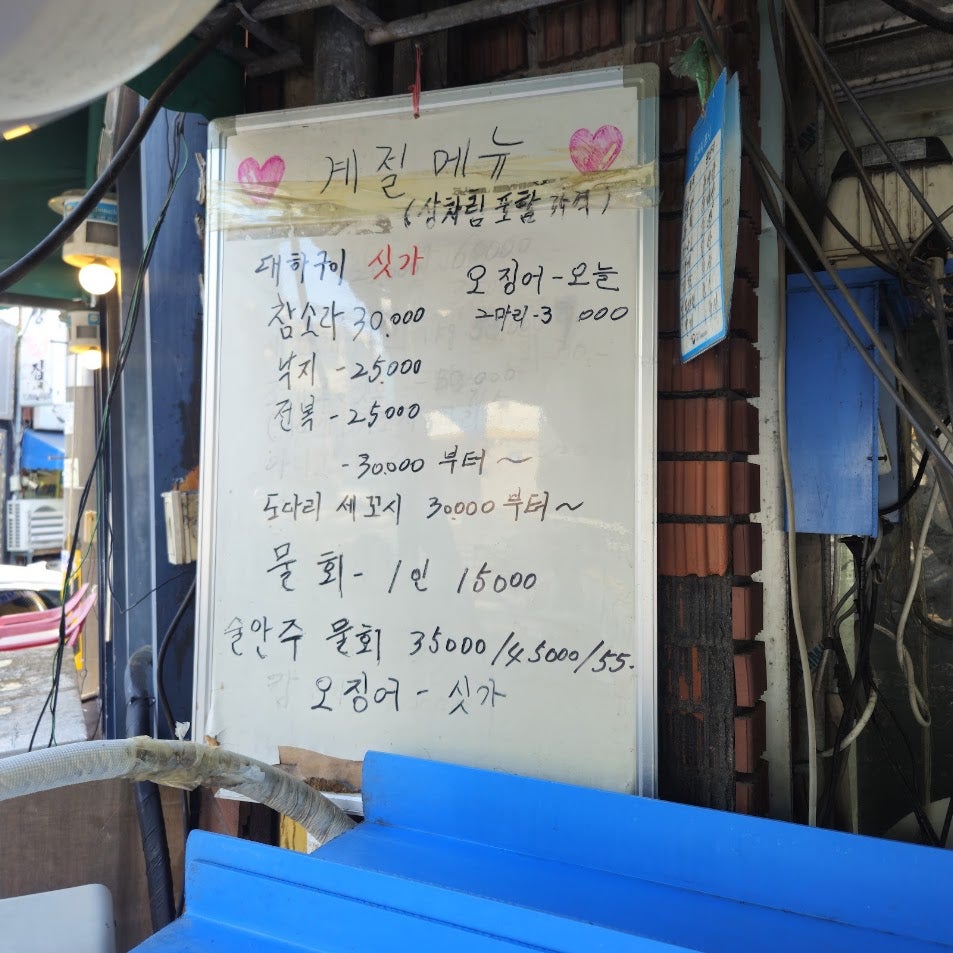 계절메뉴
(상차림 포함 가격)
대하구이 싯가
참소라 30.000
오징어-오늘
2마리-3 000
낙지 -25.000
전복 -25000
-30.000 부터~
도다리 세꼬시 30000부터~
물회- 1인 15000
술안주 물회 35000/45000/55.
오징어 - 싯가
집